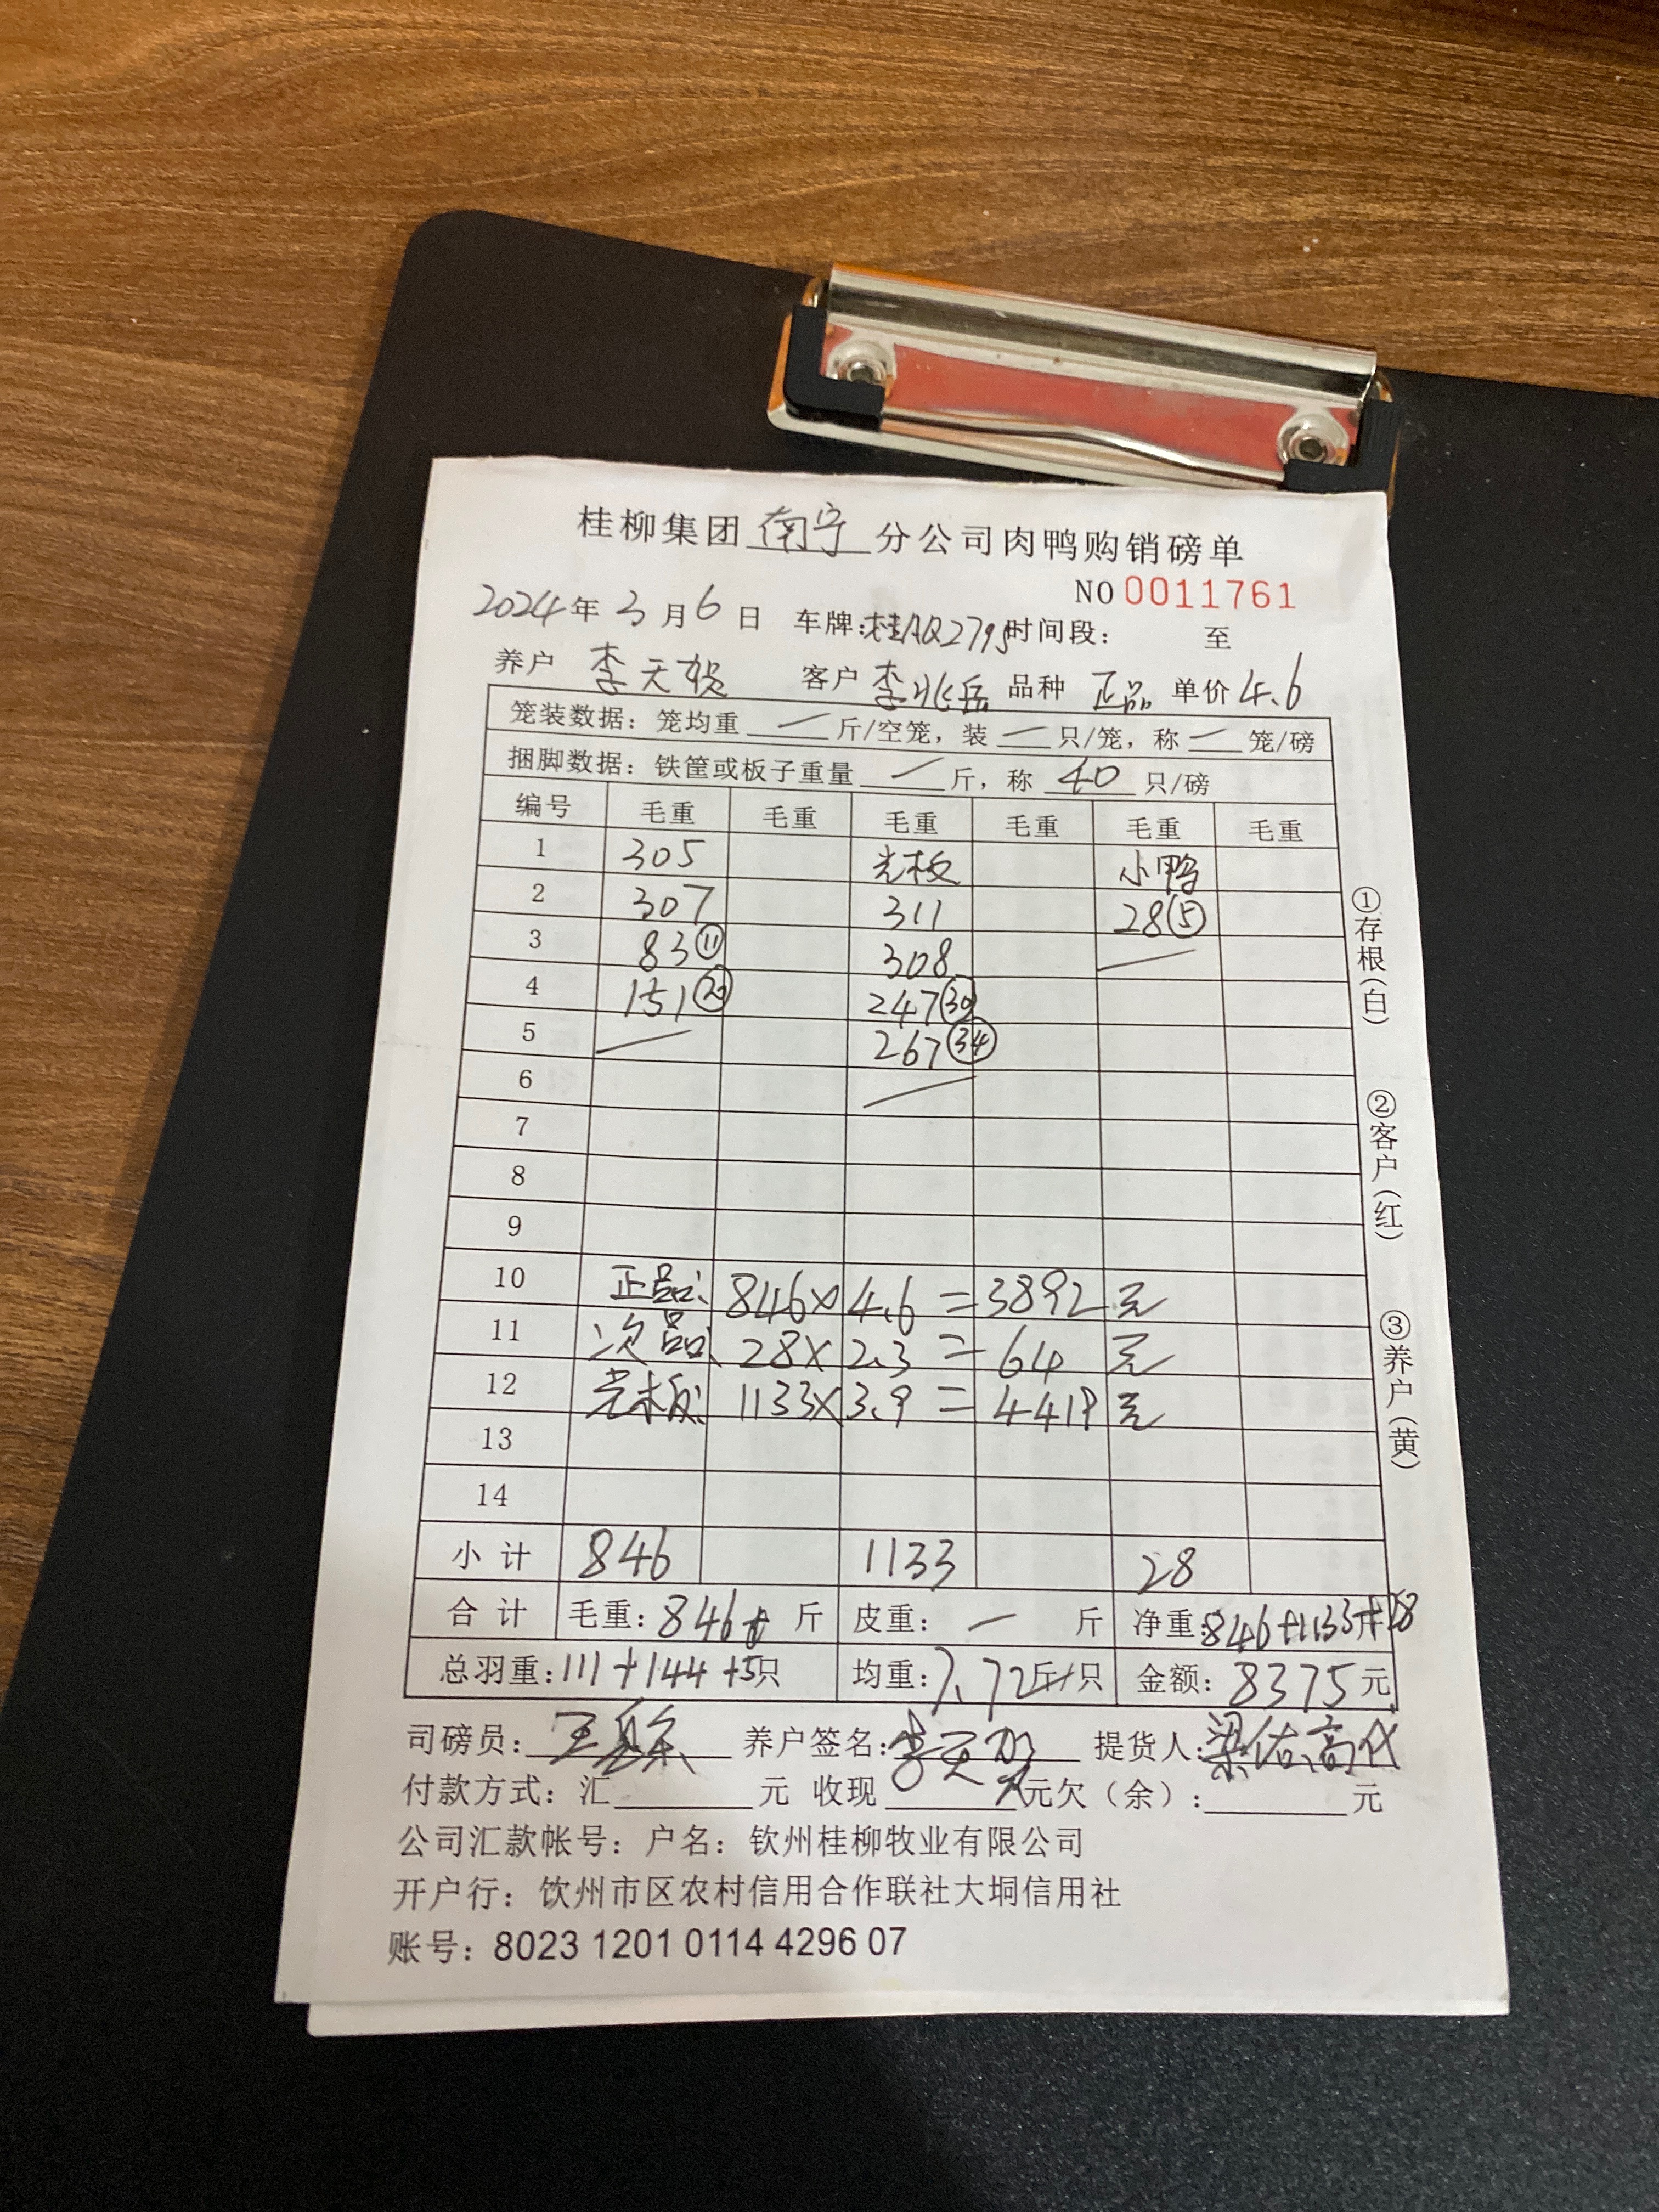 桂柳集团南宁分公司肉鸭购销磅单
NO 0011761
2024年3月6日 车牌:桂AQ2795时间段： 至
养户 李天贺 客户 李兆岳 品种 正品 单价4.6
笼装数据：笼均重 一 斤/空笼，装 一 只/笼，称 一 笼/磅
捆脚数据：铁筐或板子重量 一 斤，称 40 只/磅
编号 毛重 毛重 毛重 毛重 毛重 毛重
1 305 光板 小鸭
2 307 311 28⑤
3 83⑪ 308 一
4 151⑳ 247㉚
5 一 267㉞
6 一
7
8
9
10 正品: 846×4.6=3892元
11 次品: 28×2.3=64元
12 光板: 1133×3.9=4419元
13
14
小计 846 1133 28
合计 毛重：846+ 斤 皮重：一 斤 净重:846+1133+28
总羽重:111+144+5只 均重:7.72斤/只 金额:8375元
司磅员: 养户签名:李天 提货人:
付款方式：汇 元 收现 元欠（余）: 元
公司汇款帐号：户名：钦州桂柳牧业有限公司
开户行：饮州市区农村信用合作联社大垌信用社
账号：8023 1201 0114 4296 07
①存根(白)
②客户(红)
③养户(黄)